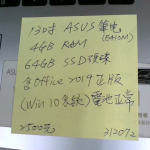 13吋 ASUS 筆電
(E410M)
4GB RAM
64GB SSD硬碟
含Office 2019正版
(Win 10系統) 電池正常
2500元
312072